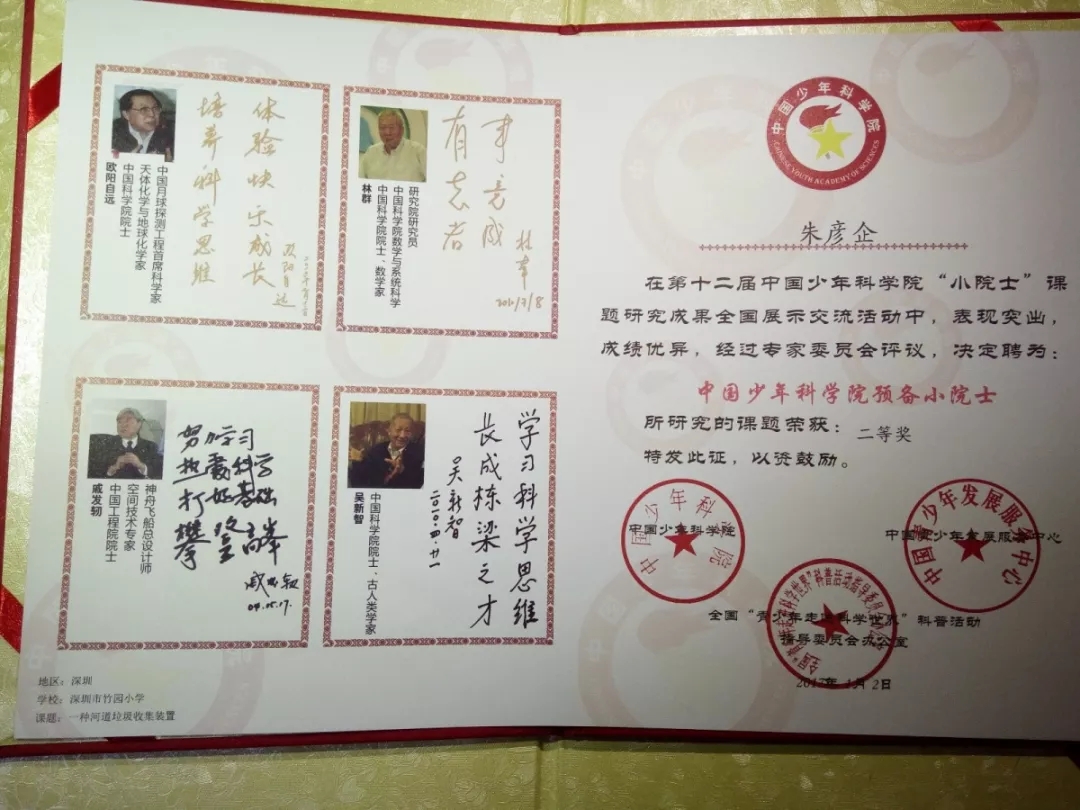 体验快乐成长
培养科学思维
欧阳自远
中国月球探测工程首席科学家
天体化学与地球化学家
中国科学院院士
欧阳自远
有志者
事竟成
林群
2011/3/8
研究院研究员
中国科学院数学与系统科学
中国科学院院士、数学家
林群
努力学习
热爱科学
打好基础
攀登高峰
戚发轫
04.05.17.
神舟飞船总设计师
空间技术专家
中国工程院院士
戚发轫
学习科学思维
长成栋梁之才
吴新智
二〇一〇.四.廿一
中国科学院院士、古人类学家
吴新智
地区：深圳
学校：深圳市竹园小学
课题：一种河道垃圾收集装置
中国少年科学院
CHINESE YOUTH ACADEMY OF SCIENCES
朱彦企
在第十二届中国少年科学院“小院士”课
题研究成果全国展示交流活动中，表现突出，
成绩优异，经过专家委员会评议，决定聘为：
中国少年科学院预备小院士
所研究的课题荣获：二等奖
特发此证，以资鼓励。
中国少年科学院
中国少年科学院
中国青少年发展服务中心
中国青少年发展服务中心
全国“青少年走进科学世界”科普活动
指导委员会办公室
全国“青少年走进科学世界”科普活动指导委员会办公室